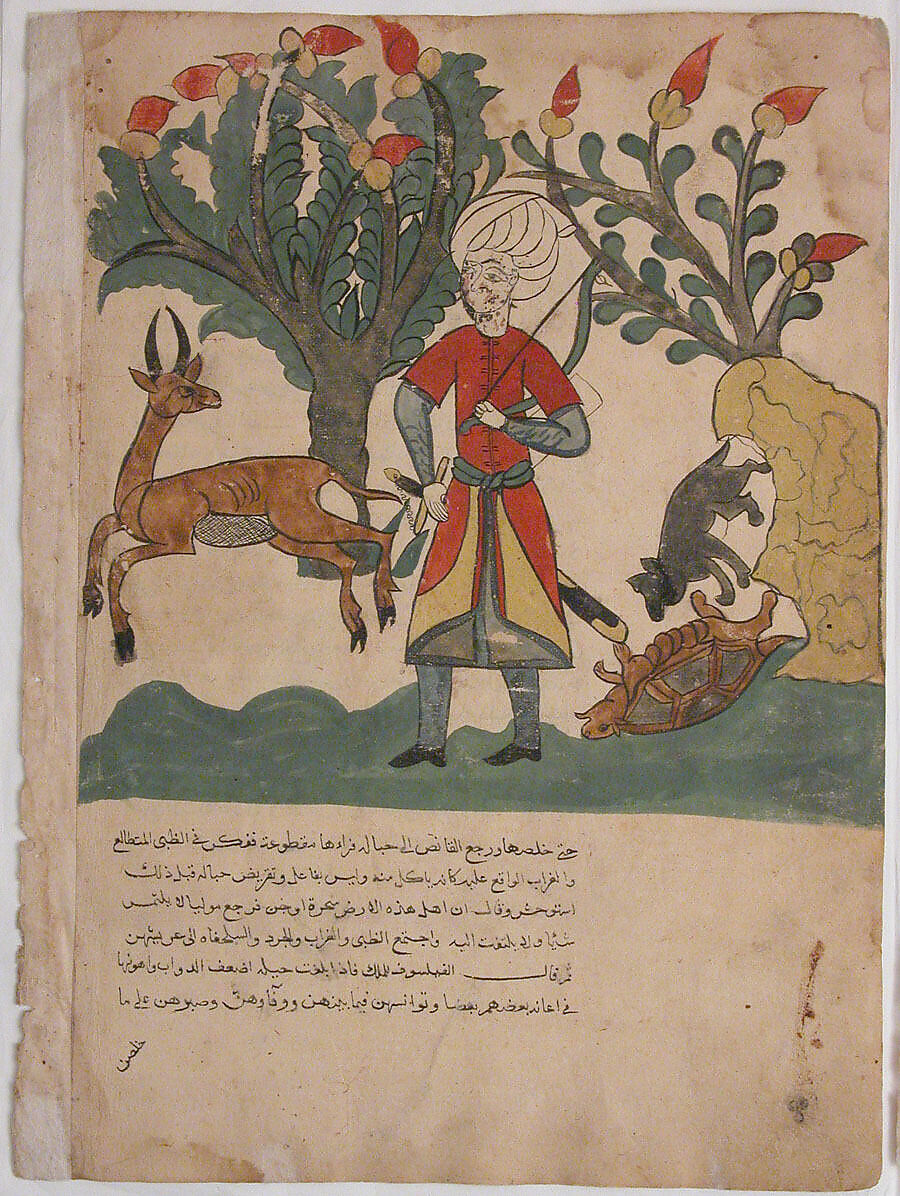 حتى خلصها ورجع القانص الى حباله فراءها مقطوعة ففكر في الظبي المتطالع
والغراب الواقع عليه كانه ياكل منه وليس بفاعل وتقريض حباله قبل ذلك
استوحش وقال ان اهل هذه الارض سحرة او جن فرجع موليا لا يلتمس
شيا ولا يلتفت اليه واجتمع الظبي والغراب والجرد والسلحفاه الى عريشهن
ثم قال الفيلسوف للملك فاذا بلغت حيلة اضعف الدواب واهونها
في اعانة بعضهم بعضا وتوانسهن فيما بينهن ووفاوهن وصبرهن على ما
خلصن